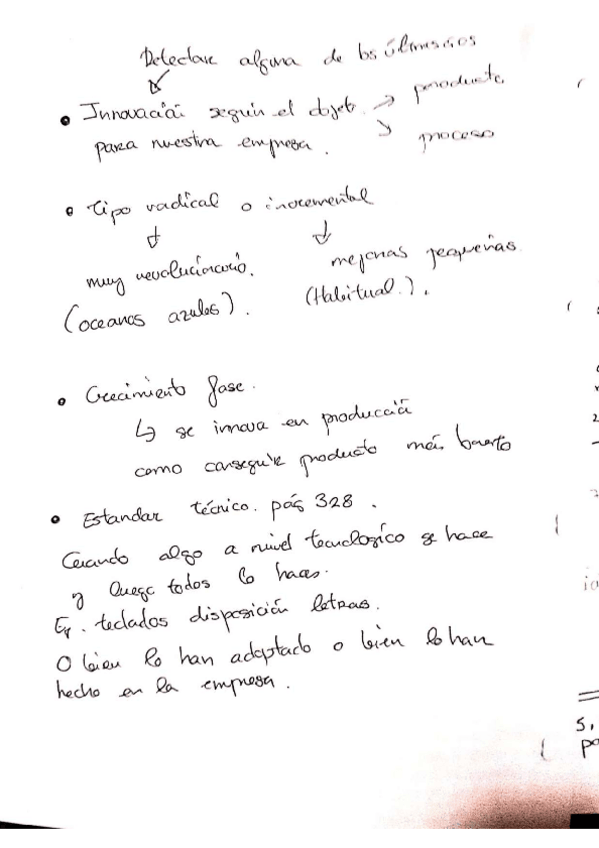 Detectar alguna de los últimos años
• Innovación según el objeto → producto
para nuestra empresa. ↘ proceso
• tipo radical o incremental
muy revolucionario. mejoras pequeñas
(oceanos azules). (Habitual.).
• Crecimiento fase.
↳ se innova en producción
como conseguir producto más barato
• Estandar técnico. pág 328.
Cuando algo a nivel tecnologico se hace
y luego todos lo haces.
Ej. teclados disposición letras.
O bien lo han adoptado o bien lo han
hecho en la empresa.